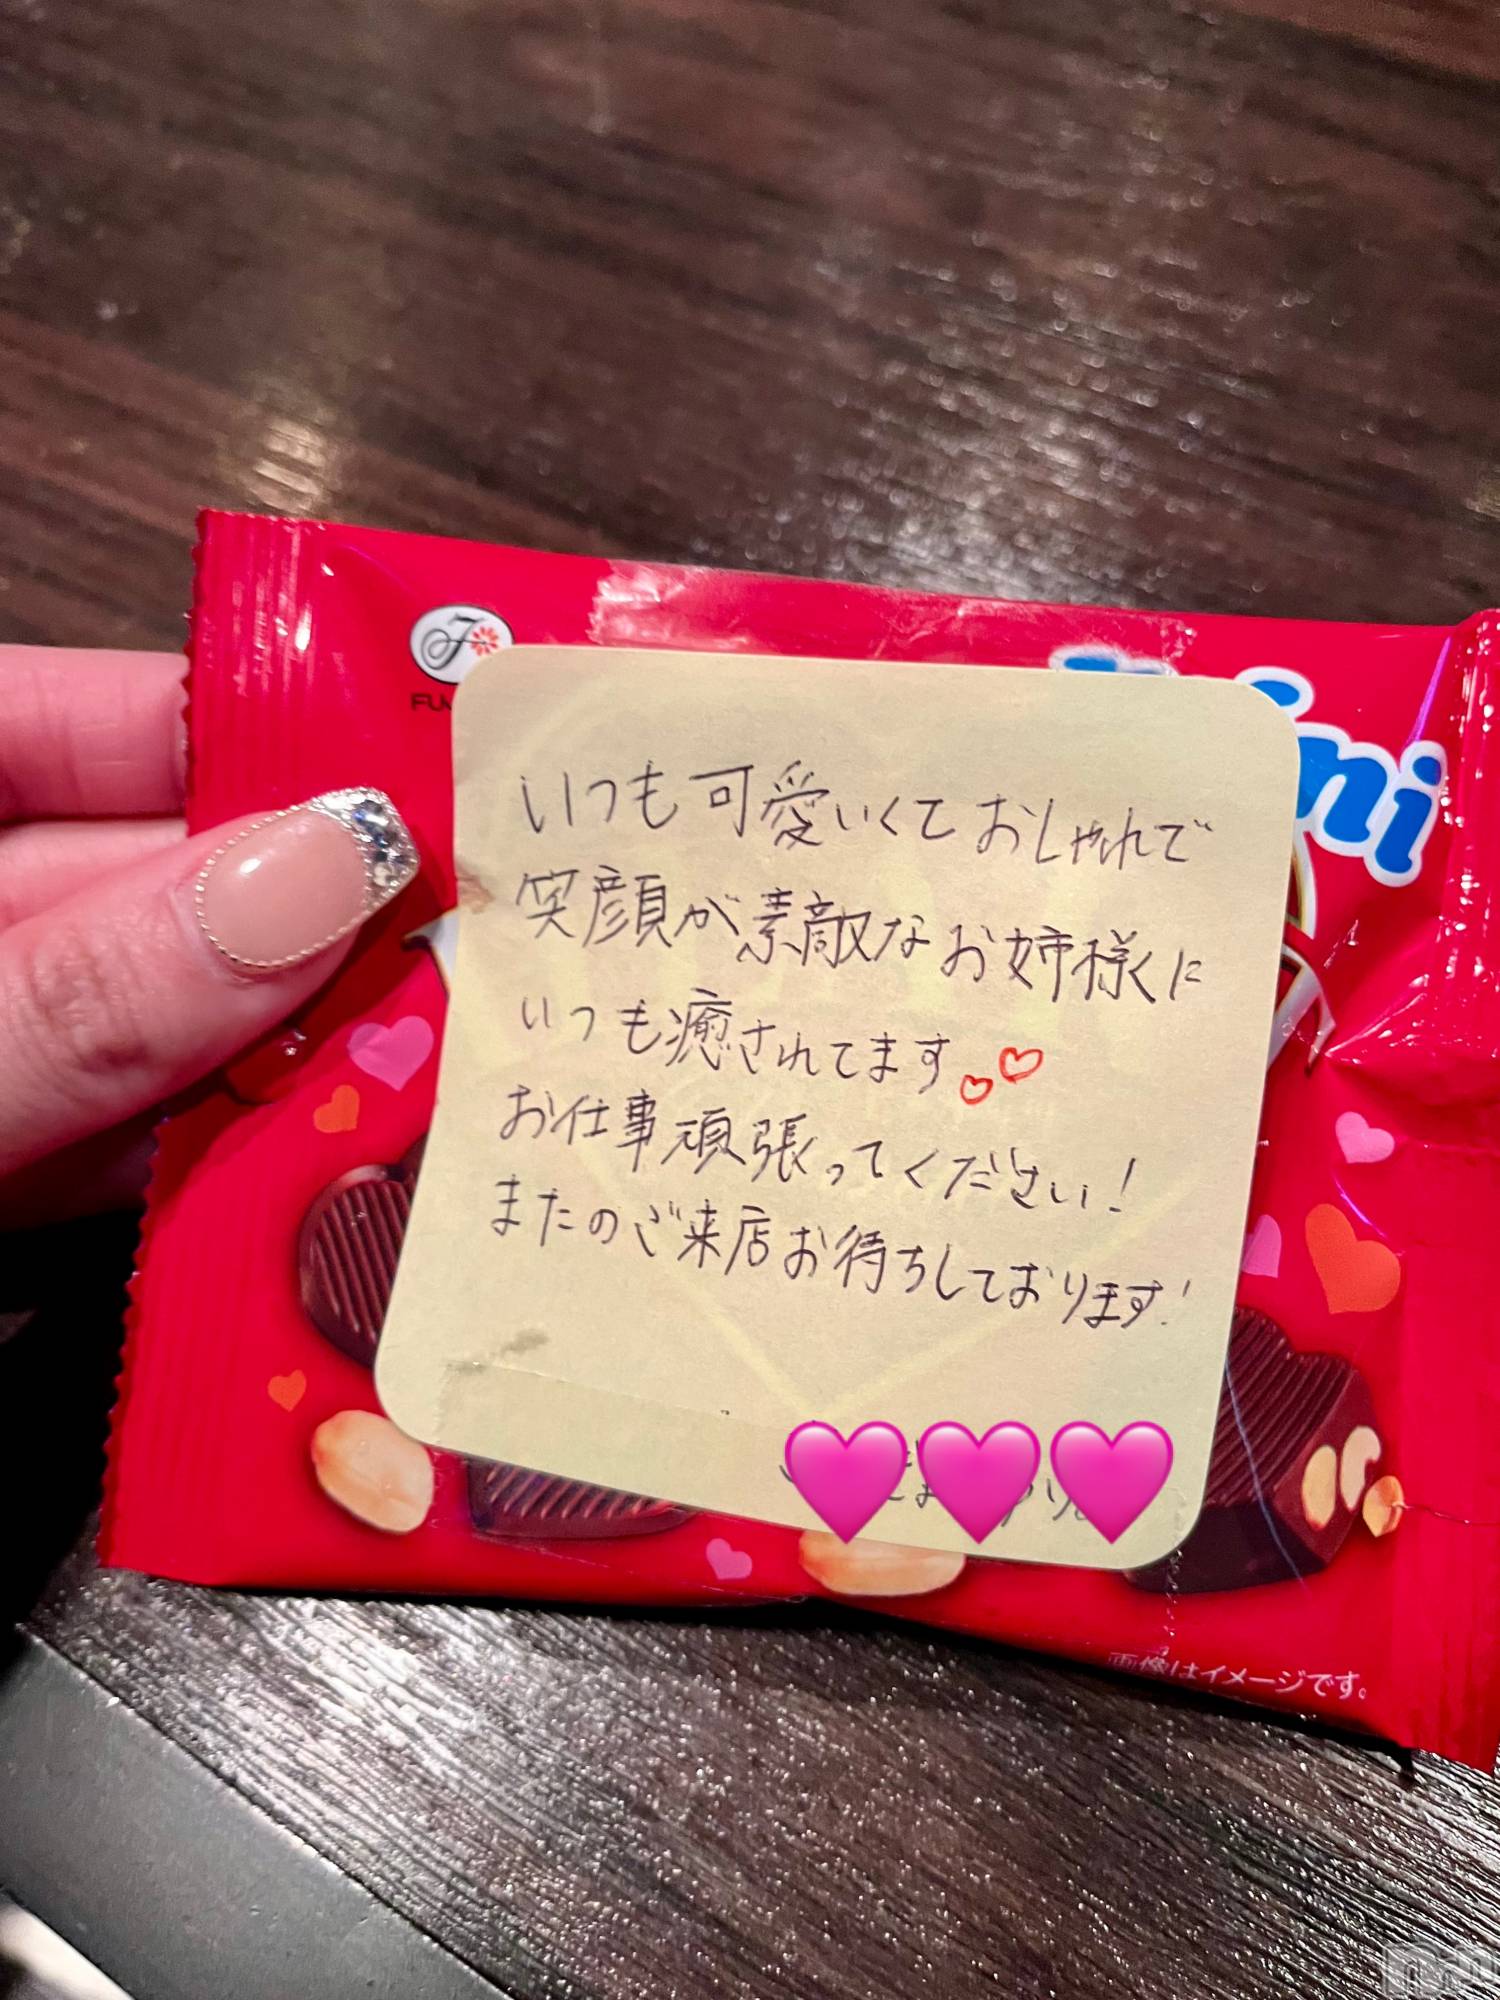 いつも可愛いくておしゃれで
笑顔が素敵なお姉様に
いつも癒されてます♡♡
お仕事頑張ってください!
またのご来店お待ちしております!
ni
画像はイメージです。